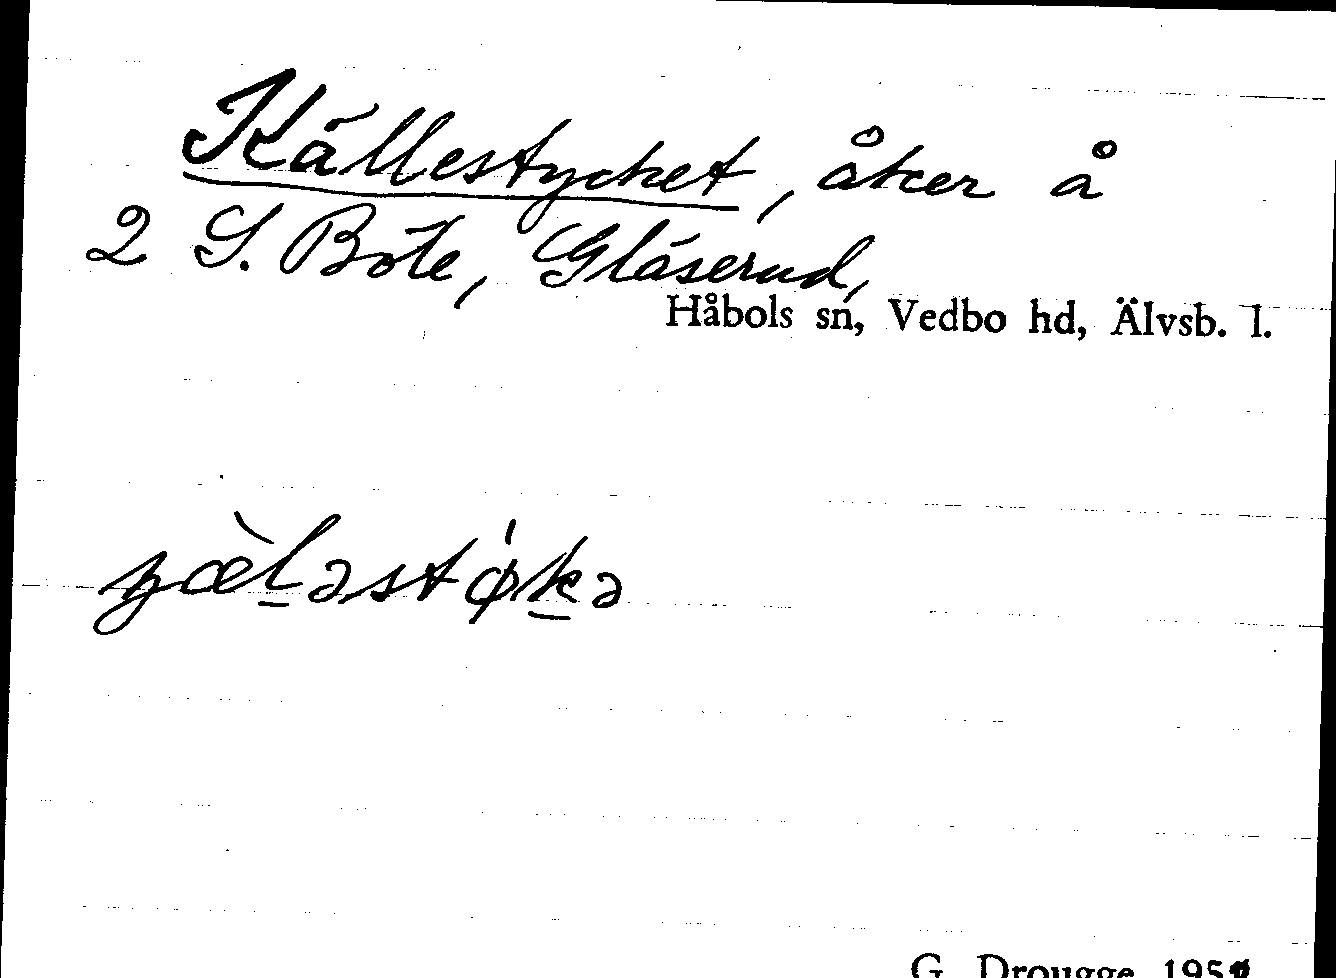 Källestycket, åker å
2 S. Böte, Glåserud,
Håbols sn, Vedbo hd, Älvsb. l.
G. Drougge